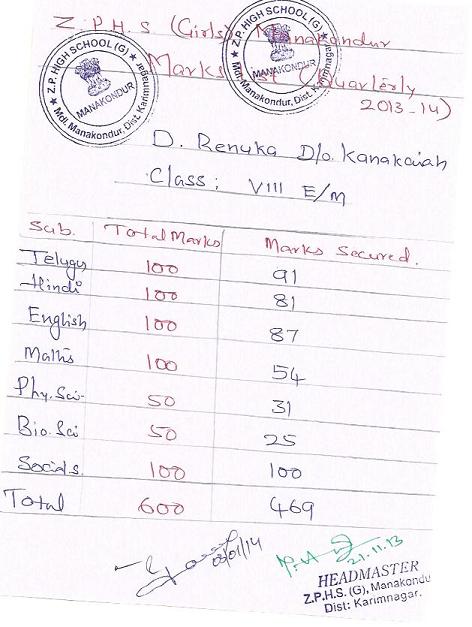 Z.P.H.S (Girls) Manakondur
Marks List (Quarterly
2013-14)
★ Z.P. HIGH SCHOOL (G) ★
MANAKONDUR
Mdl. Manakondur, Dist. Karimnagar.
★ Z.P. HIGH SCHOOL (G) ★
MANAKONDUR
Mdl. Manakondur, Dist. Karimnagar.
D. Renuka D/o. Kanakaiah
Class: VIII E/M
Sub. Total Marks Marks Secured.
Telugu 100 91
Hindi 100 81
English 100 87
Maths 100 54
Phy.Sci- 50 31
Bio.Sci 50 25
Socials. 100 100
Total 600 469
03/01/14
21.11.13
HEADMASTER
Z.P.H.S. (G), Manakondu
Dist: Karimnagar.